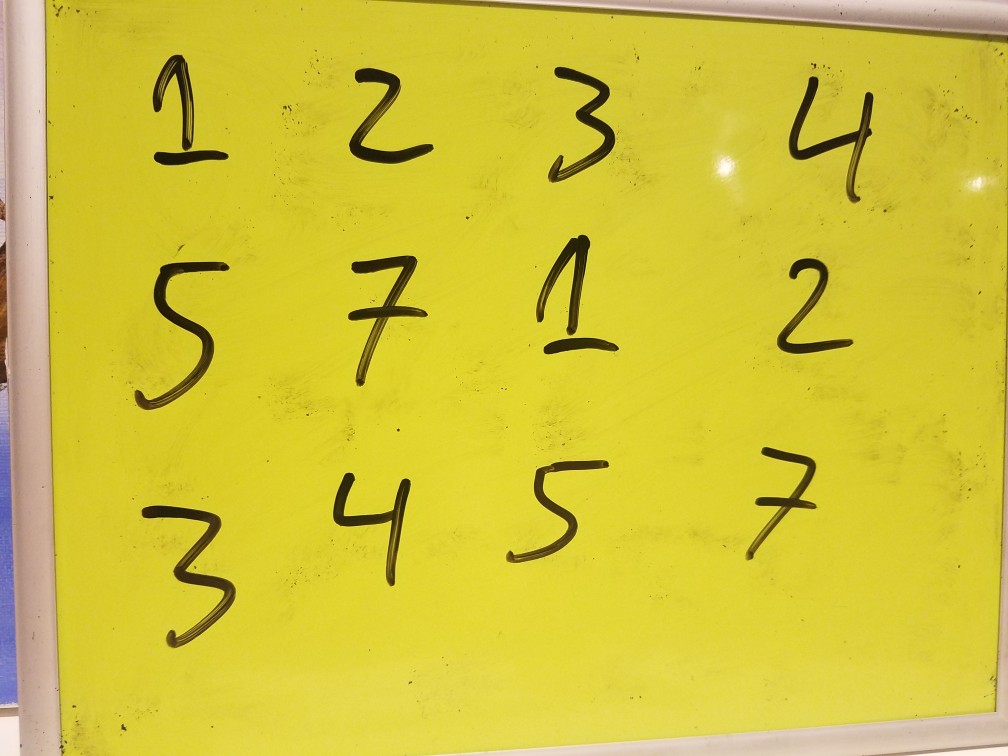 1 2 3 4
5 7 1 2
3 4 5 7